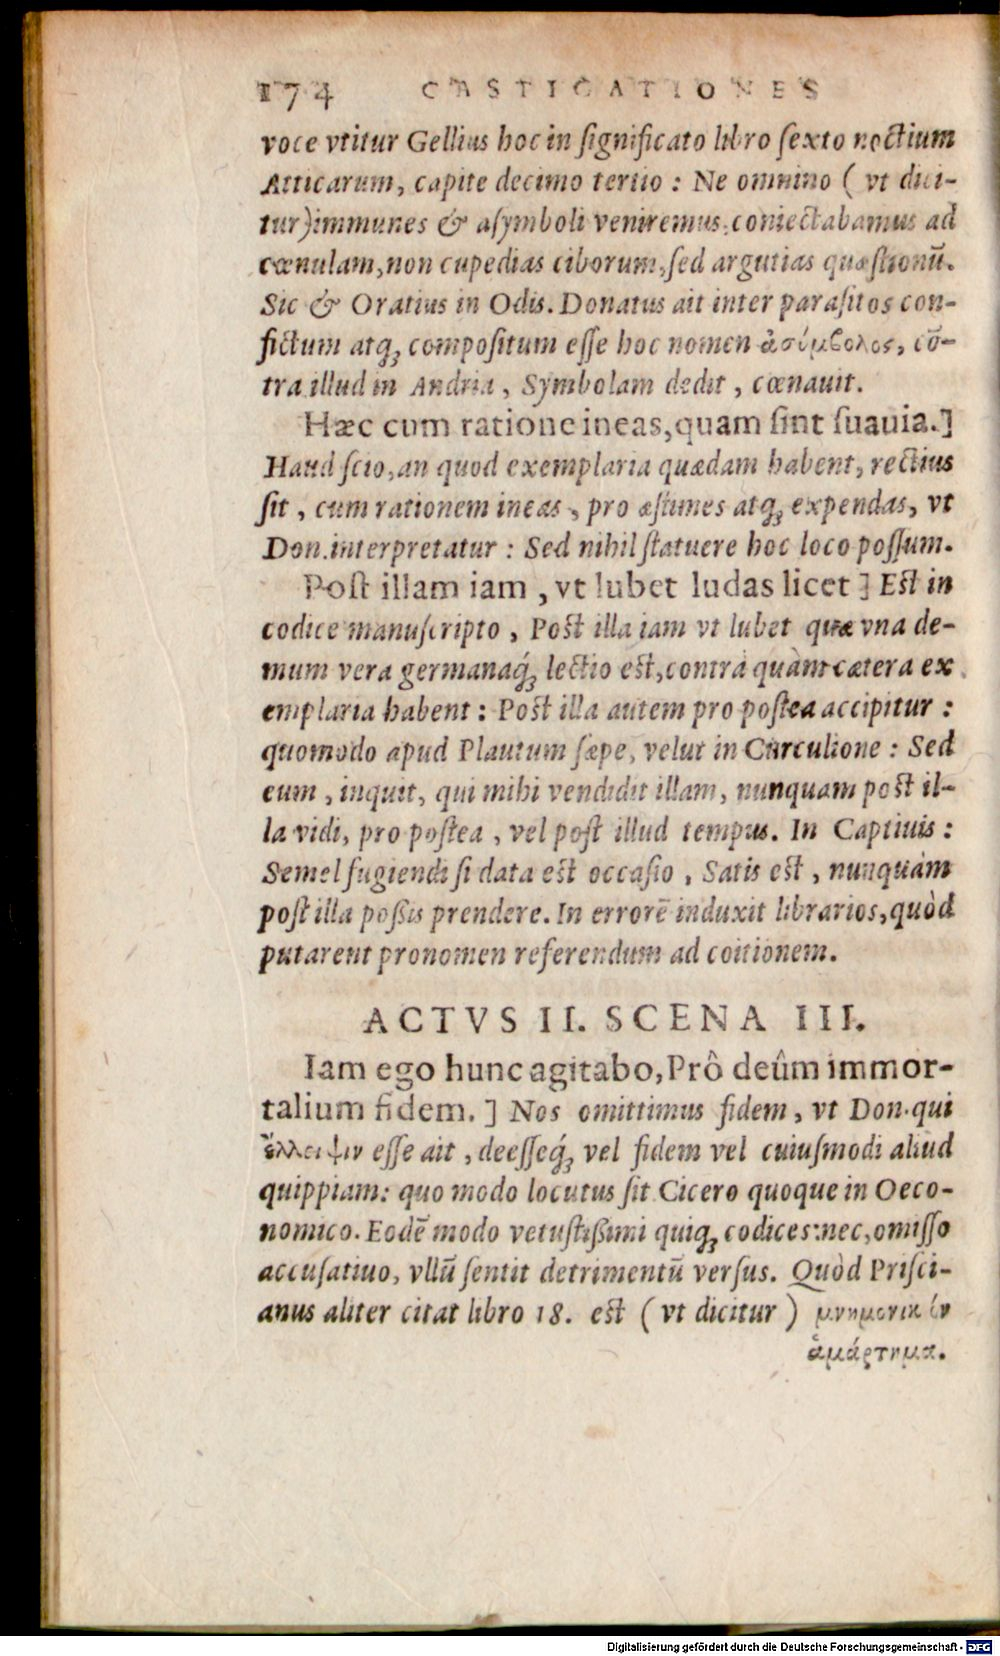 174 CASTIGATIONES
voce vtitur Gellius hoc in ſignificato libro ſexto noctium
Atticarum, capite decimo tertio : Ne omnino ( vt dici-
tur) immunes & aſymboli veniremus, coniectabamus ad
cœnulam, non cupedias ciborum, ſed argutias quæſtionū.
Sic & Oratius in Odis. Donatus ait inter paraſitos con-
fictum atq́; compoſitum eſſe hoc nomen ἀσύμβολος, cō-
tra illud in Andria, Symbolam dedit, cœnauit.
Hæc cum ratione ineas, quam ſint ſuauia.]
Haud ſcio, an quod exemplaria quædam habent, rectius
ſit, cum rationem ineas, pro æſtimes atq́; expendas, vt
Don. interpretatur : Sed nihil ſtatuere hoc loco poſſum.
Poſt illam iam, vt lubet ludas licet ] Eſt in
codice manuſcripto, Poſt illa iam vt lubet quæ vna de-
mum vera germanaq́; lectio eſt, contrà quàm cætera ex
emplaria habent : Poſt illa autem pro poſtea accipitur :
quomodo apud Plautum ſæpe, velut in Curculione : Sed
eum, inquit, qui mihi vendidit illam, nunquam poſt il-
la vidi, pro poſtea, vel poſt illud tempus. In Captiuis :
Semel fugiendi ſi data eſt occaſio, Satis eſt, nunquàm
poſt illa poßis prendere. In errorē induxit librarios, quòd
putarent pronomen referendum ad coitionem.
ACTVS II. SCENA III.
Iam ego hunc agitabo, Prô deûm immor-
talium fidem. ] Nos omittimus fidem, vt Don. qui
ἔλλειψιν eſſe ait, deeſſeq́; vel fidem vel cuiuſmodi aliud
quippiam: quo modo locutus ſit Cicero quoque in Oeco-
nomico. Eodē modo vetuſtißimi quiq́; codices: nec, omiſſo
accuſatiuo, vllū ſentit detrimentū verſus. Quòd Priſci-
anus aliter citat libro 18. eſt ( vt dicitur ) μνημονικὸν
ἁμάρτημα.
Digitalisierung gefördert durch die Deutsche Forschungsgemeinschaft - DFG